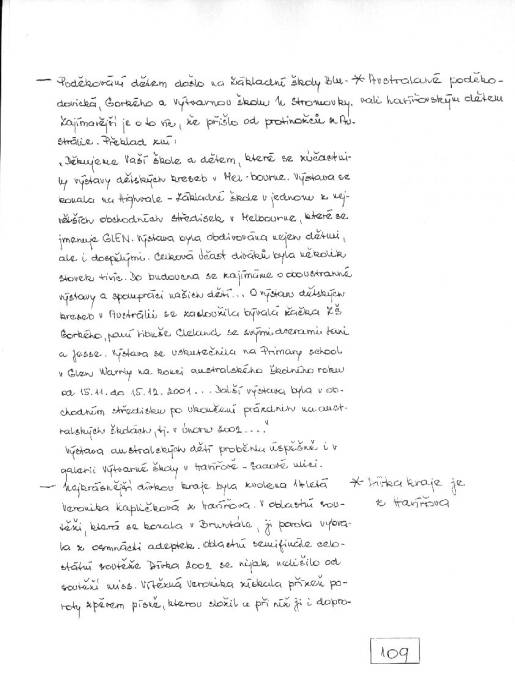 — Poděkování dětem došlo na Základní školy Žlu-
dovická, Gorkého a výtvarnou školu k Stromovky.
Zajímavější je o to víc, že přišlo od protinožců z Au-
strálie. Překlad zní:
„Děkujeme Vaší škole a dětem, které se zúčastni-
ly výstavy dětských kreseb v Mel-bourne. Výstava se
konala na Highvale - Základní škole v jednom z nej-
větších obchodních středisek v Melbourne, které se
jmenuje GLEN. Výstava byla obdivována nejen dětmi,
ale i dospělými. Celková účast diváků byla několik
stovek tisíc. Do budoucna se zajímáme o oboustranné
výstavy a spolupráci našich dětí... O výstavu dětských
kreseb v Austrálii se zasloužila bývalá žačka ZŠ
Gorkého, paní Libuše Cleland se svými dcerami
a Jesse. Výstava se uskutečnila na Primary school
v Glen Warrly na konci australského školního roku
od 15.11. do 15.12. 2001... Další výstava byla v ob-
chodním středisku po ukončení prázdnin na aust-
ralských školách, tj. v únoru 2002...."
Výstava australských dětí proběhla úspěšně i v
galerii Výtvarné školy v Havířově - ulici.
— Nejkrásnější dívkou kraje byla zvolena letá
Veronika Kapličková z Havířova. V oblastní sou-
těži, která se konala v Bruntále, ji porota vybra-
la z osmnácti adeptek. Oblastní semifinále celo-
státní soutěže Dívka 2002 se nijak nelišilo od
soutěží miss. Vítězná Veronika získala přízeň po-
roty zpěvem písně, kterou složil a při níž ji i dopro-
* Australané poděko-
vali havířovským dětem
* Dívka kraje je
z Havířova
109